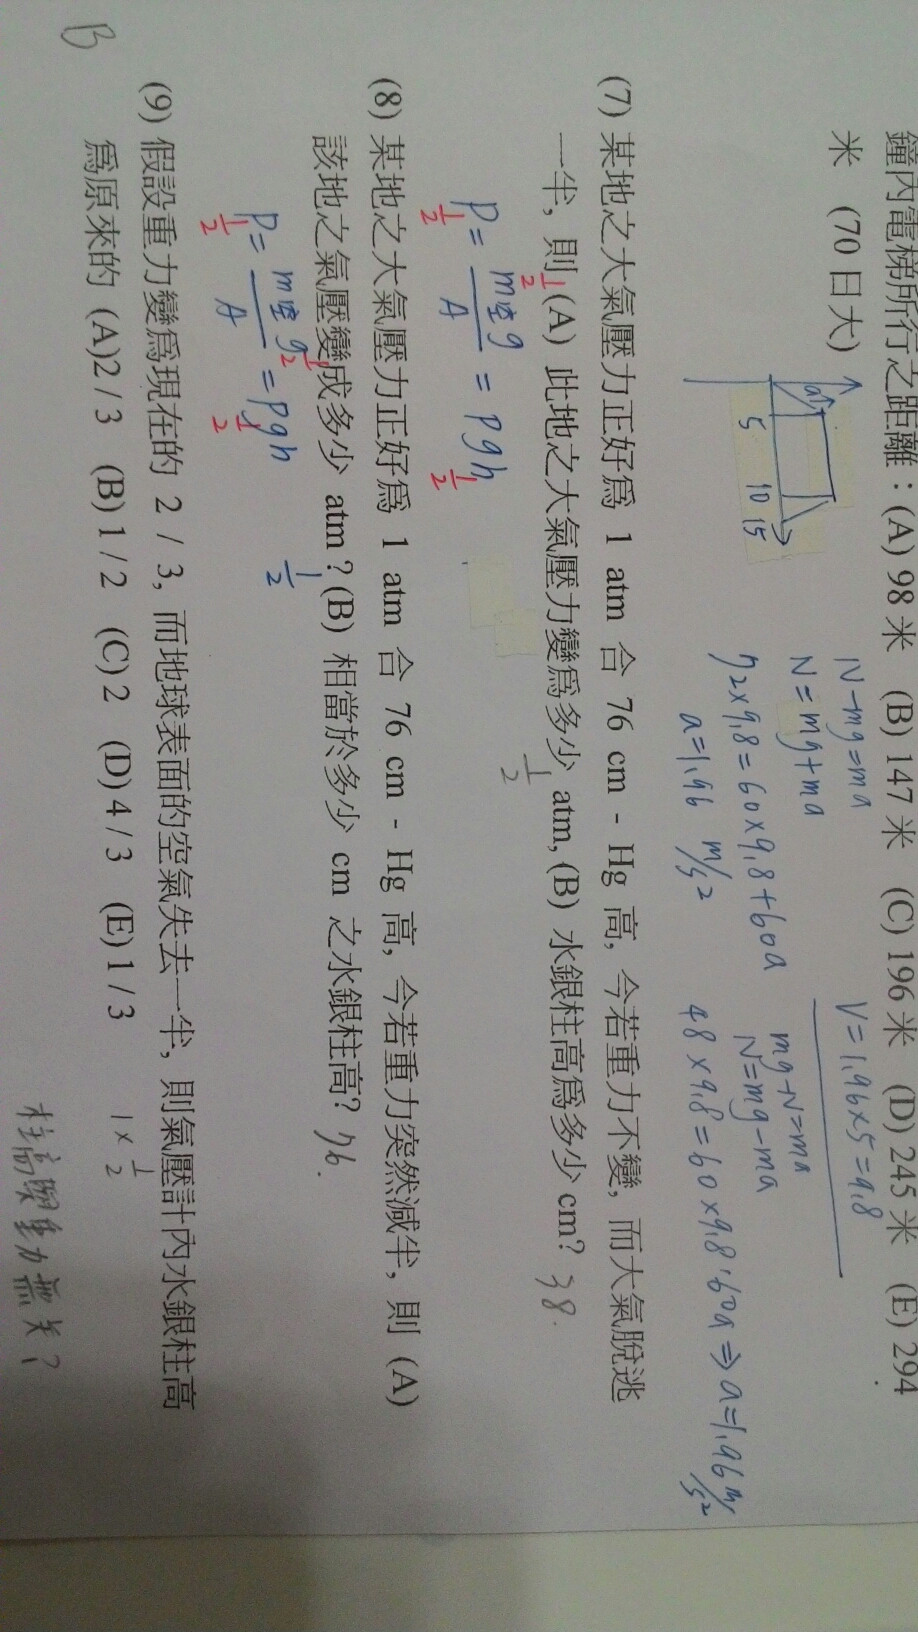 鐘內電梯所行之距離：(A) 98 米 (B) 147 米 (C) 196 米 (D) 245 米 (E) 294
米 (70 日大)
a↑
5 10 15
N-mg=ma
N=mg+ma
72×9.8=60×9.8+60a
a=1.96 m/s²
V=1.96×5=9.8
mg-N=ma
N=mg-ma
48×9.8=60×9.8-60a⇒a=1.96 m/s²
(7) 某地之大氣壓力正好為 1 atm 合 76 cm - Hg 高, 今若重力不變, 而大氣脫逃
一半, 則 (A) 此地之大氣壓力變為多少 atm, (B) 水銀柱高為多少 cm? 38.
1/2
P = m空g/A = ρgh
1/2 1/2 1/2
(8) 某地之大氣壓力正好為 1 atm 合 76 cm - Hg 高, 今若重力突然減半, 則 (A)
該地之氣壓變成多少 atm？(B) 相當於多少 cm 之水銀柱高? 76.
1/2
P = m空g/A = ρgh
1/2 1/2 1/2
(9) 假設重力變為現在的 2 / 3, 而地球表面的空氣失去一半, 則氣壓計內水銀柱高
為原來的 (A)2 / 3 (B) 1 / 2 (C) 2 (D) 4 / 3 (E) 1 / 3
1×1/2
B
柱高與重力無关?